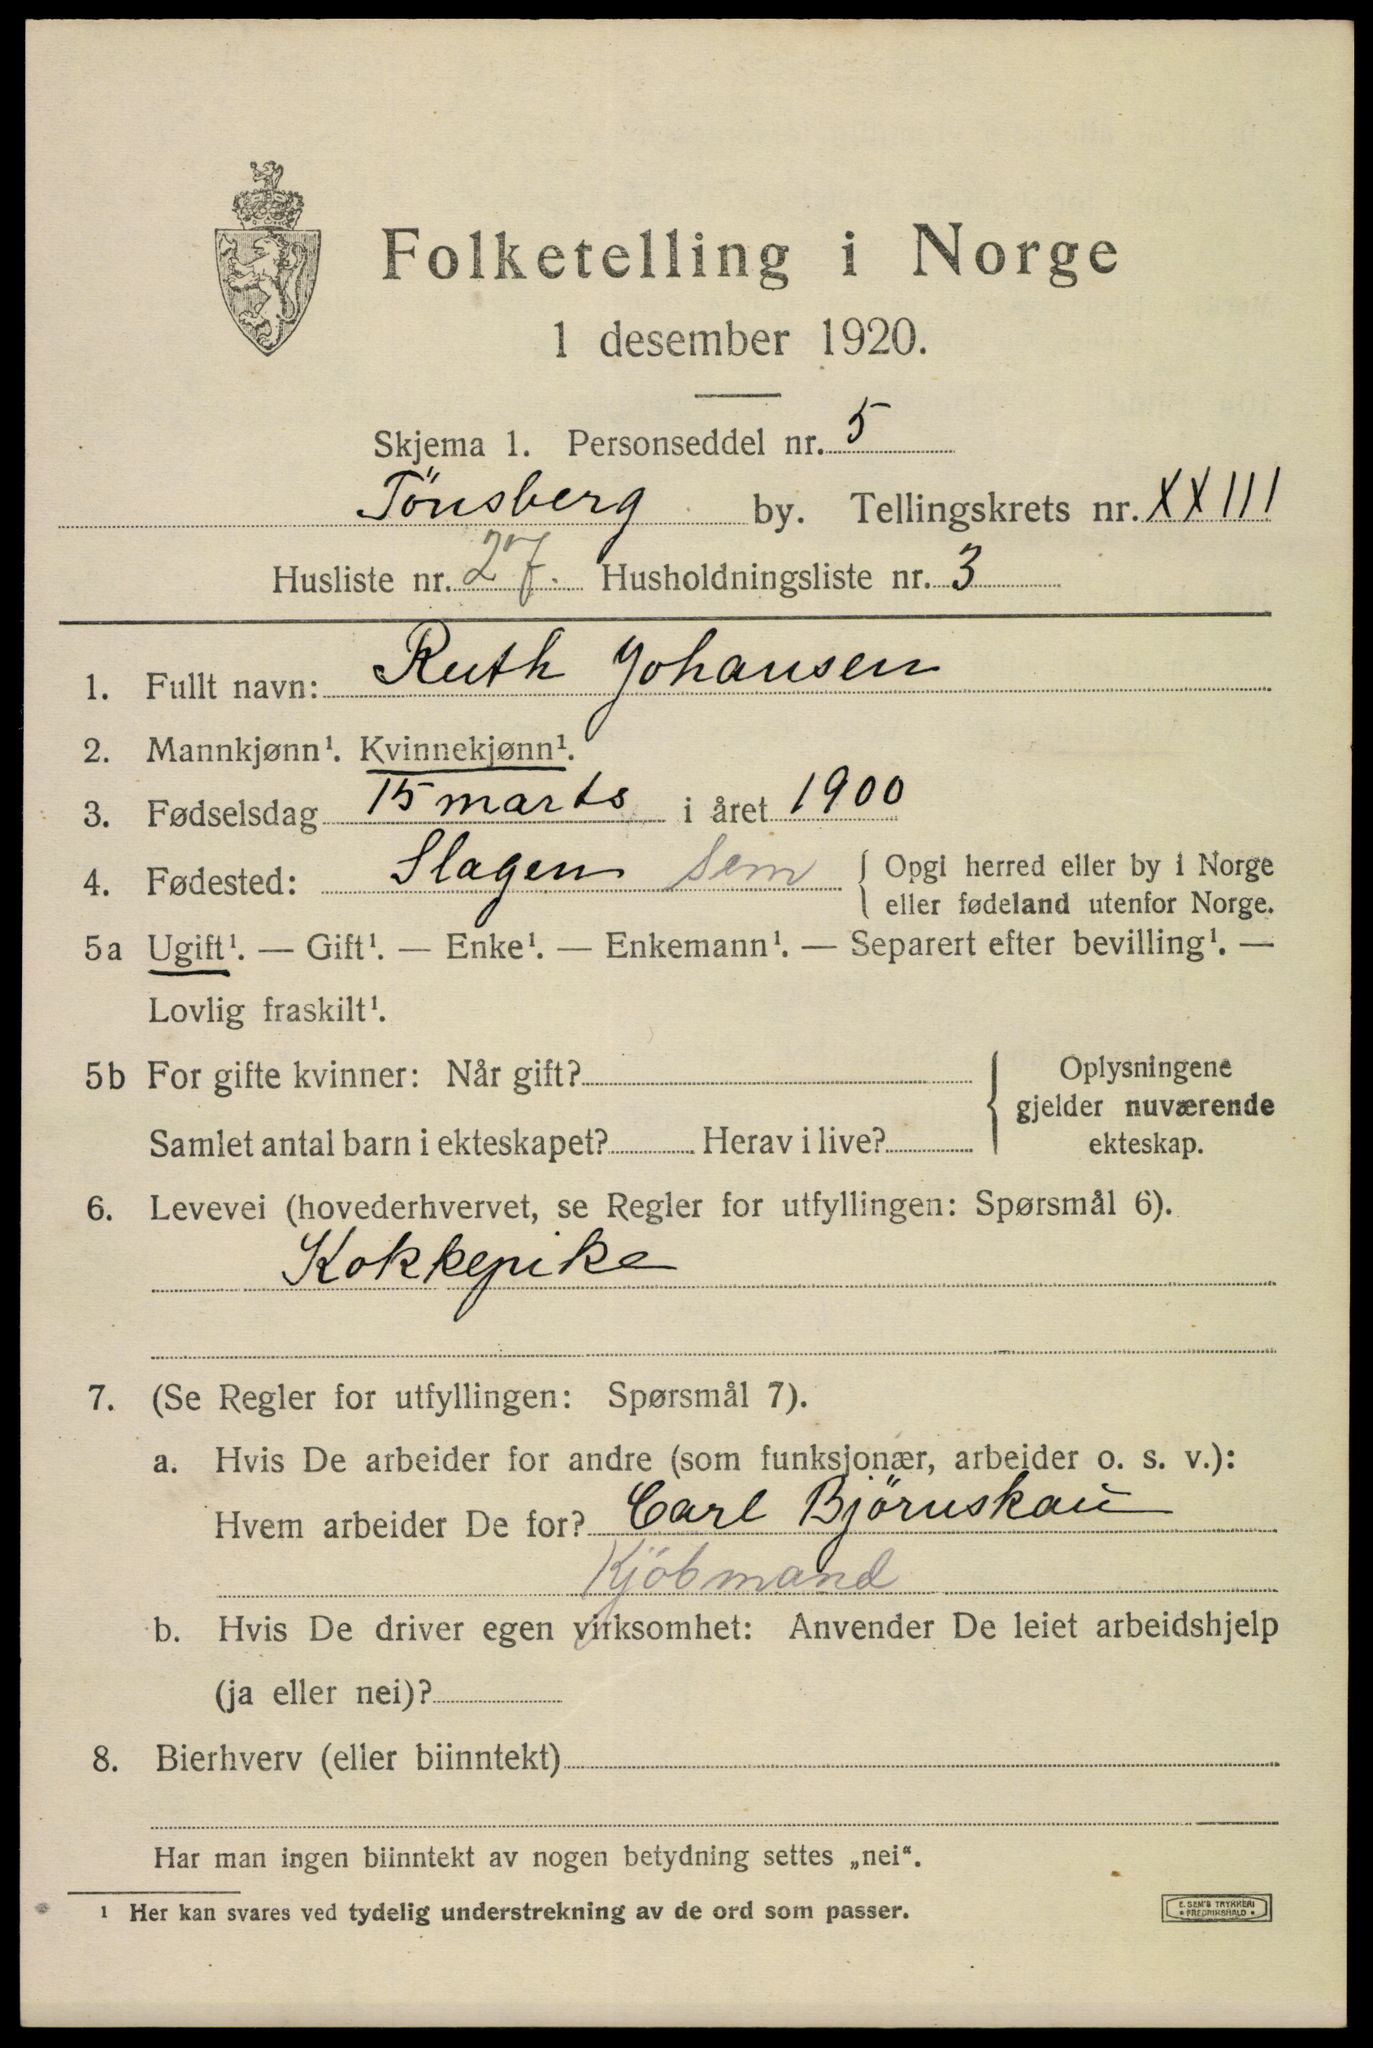 Folketelling i Norge
1 desember 1920.
Skjema 1. Personseddel nr. 5
Tönsberg by. Tellingskrets nr. XXIII
Husliste nr. 27. Husholdningsliste nr. 3
1. Fullt navn: Ruth Johansen
2. Mannkjønn¹. Kvinnekjønn¹.
3. Fødselsdag 15 marts i året 1900
4. Fødested: Slagen Sem { Opgi herred eller by i Norge
eller fødeland utenfor Norge.
5a Ugift¹. — Gift¹. — Enke¹. — Enkemann¹. — Separert efter bevilling¹. —
Lovlig fraskilt¹.
5b For gifte kvinner: Når gift? { Oplysningene
gjelder nuværende
Samlet antal barn i ekteskapet? Herav i live? ekteskap.
6. Levevei (hovederhvervet, se Regler for utfyllingen: Spørsmål 6).
Kokkepike
7. (Se Regler for utfyllingen: Spørsmål 7).
a. Hvis De arbeider for andre (som funksjonær, arbeider o. s. v.):
Hvem arbeider De for? Carl Björnskau
Kjöbmand
b. Hvis De driver egen virksomhet: Anvender De leiet arbeidshjelp
(ja eller nei)?
8. Bierhverv (eller biinntekt)
Har man ingen biinntekt av nogen betydning settes „nei“.
¹ Her kan svares ved tydelig understrekning av de ord som passer.
E. SEM'S TRYKKERI
* FREDRIKSHALD *